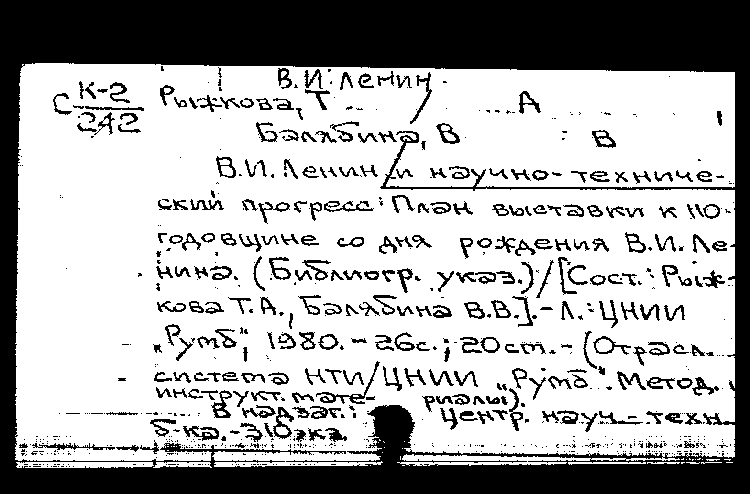 В.И. Ленин.
С К-2
242
Рыжкова, Т А
Балябина, В В
В.И. Ленин и научно-техниче-
ский прогресс: План выставки к 110-
годовщине со дня рождения В.И. Ле-
нина. (Библиогр. указ.)/[Сост.: Рыж-
кова Т.А., Балябина В.В.].- Л.: ЦНИИ
„Румб", 1980. - 26с.; 20cm. - (Отрасл.
система НТИ/ЦНИИ „Румб". Метод.
инструкт. мате- риалы).
В надзаг.: Центр. науч.-техн.
б-ка. - 310 экз.